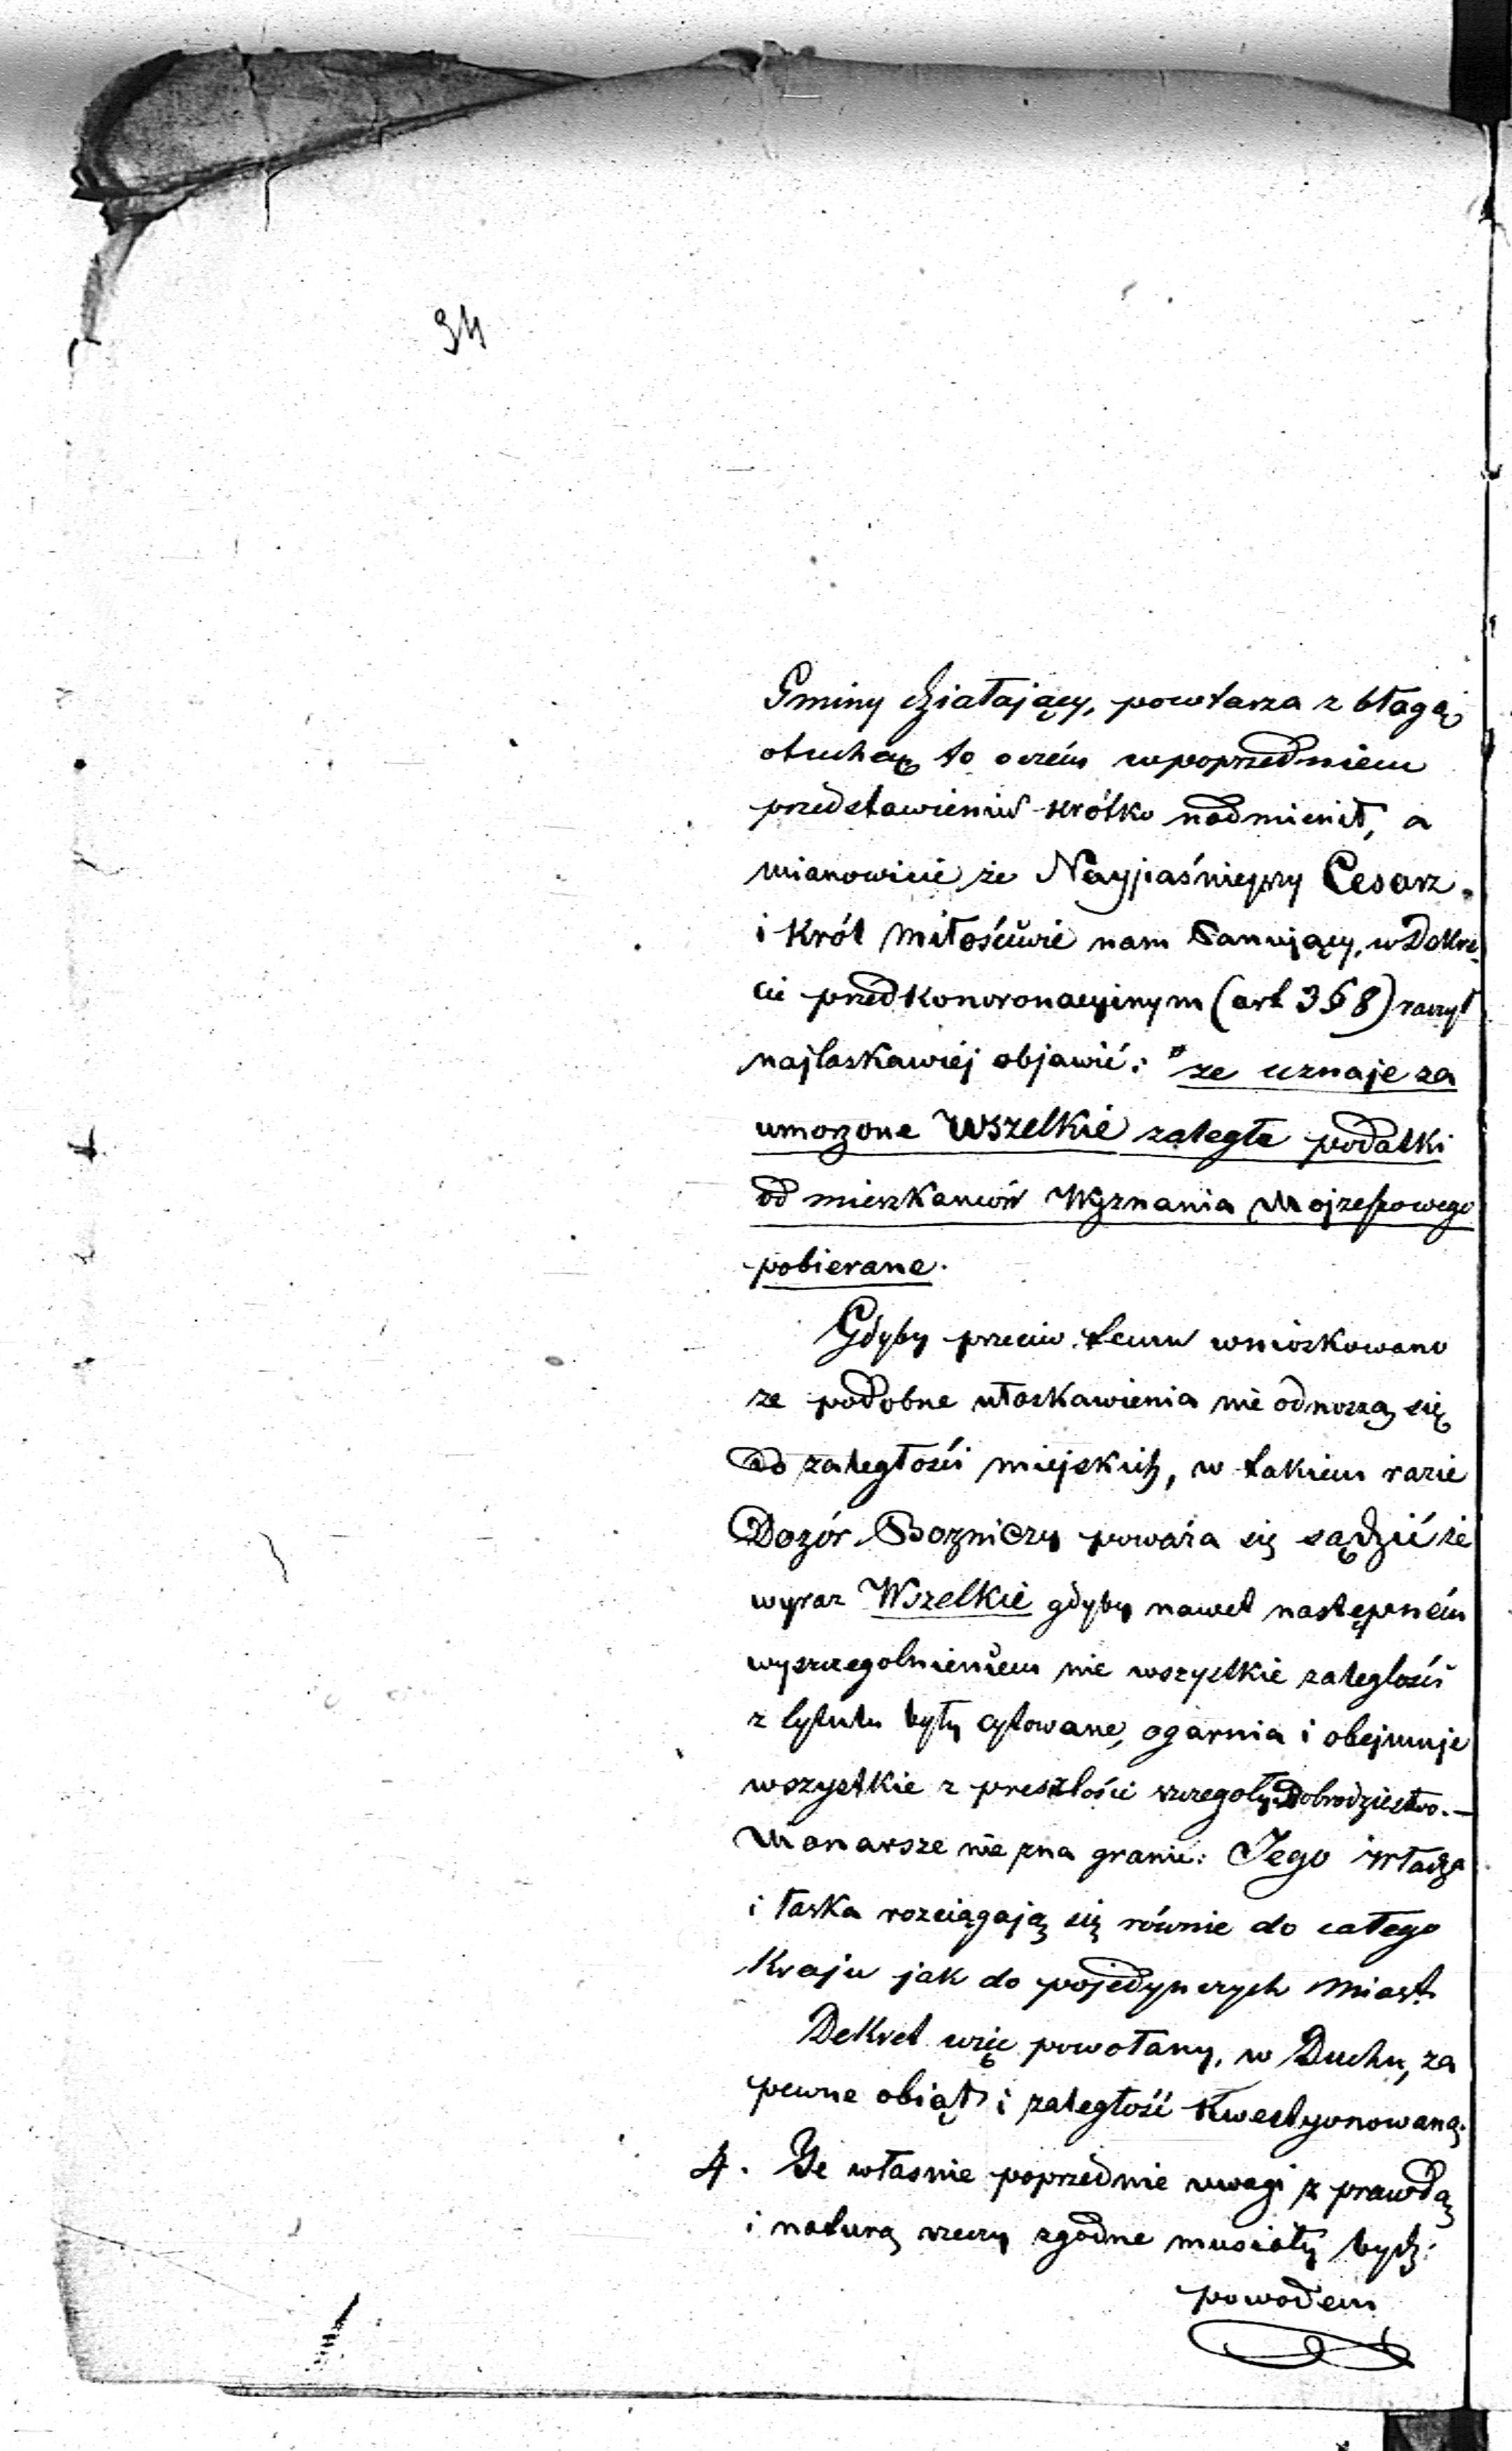 94
Gminy działający, powtarza z błogą
otuchą to oczém w poprzedniem
przedstawieniu krótko nadmienił, a
mianowicie że Nayjaśnieyszy Cesarz
i Król Miłościwie nam Panujący, w Dekre-
cie przedkonoronacyinym (art 3 § 8) raczył
najłaskawiej objawić: "że uznaje za
umorzone Wszelkie zaległe podatki
od mieszkańców Wyznania Mojżeszowego
pobierane.
Gdyby przeciw temu wnioskowano
że podobne ułaskawienia nie odnoszą się
do zaległości miejskich, w takiem razie
Dozór Bozniczy poważa się sądzić że
wyraz Wszelkie gdyby nawet następném
wyszczegolnieniem nie wszystkie zaległości
z tytułu były cytowane, ogarnia i obejmuje
wszystkie z przeszłości szczegoły. Dobrodziejstwo.—
Monarsze nie zna granic: Jego Władza
i łaska rozciągają się równie do całego
Kraju jak do pojedynczych Miast.
Dekret więc powołany, w Duchu, za
pewne obiął i zaległość kwestyonowaną.
4. Że własnie poprzednie uwagi z prawdą
i naturą rzeczy zgodne musiały bydź
powodem